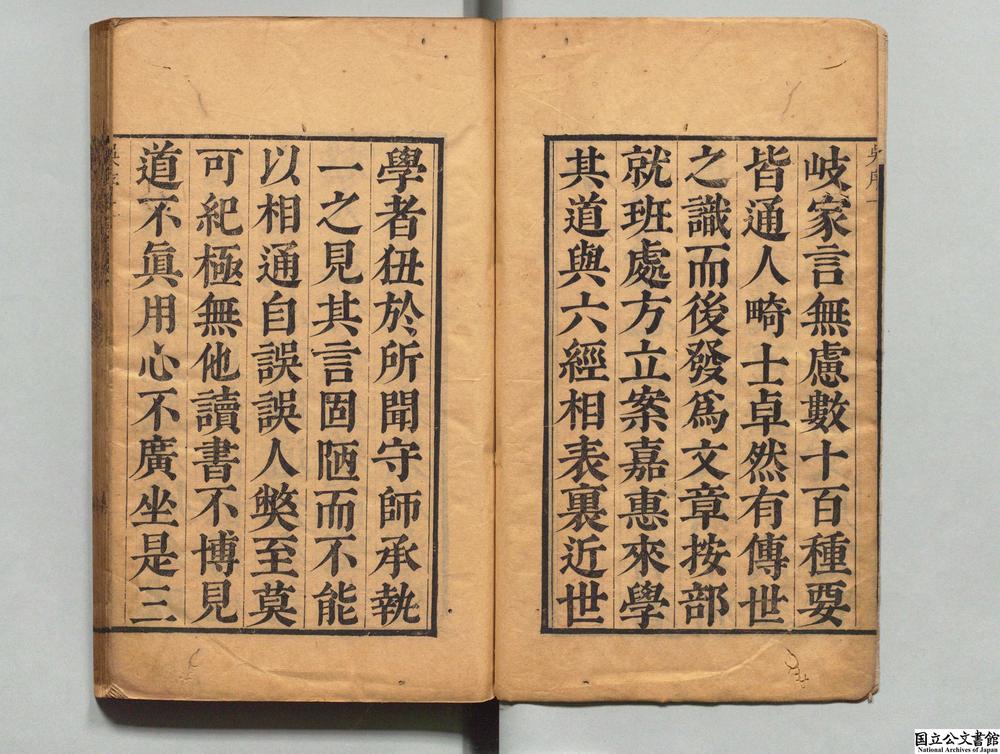 岐家言無慮數十百種要
皆通人畸士卓然有傳世
之識而後發爲文章按部
就班處方立案嘉惠來學
其道與六經相表裏近世
學者狃於所聞守師承執
一之見其言固陋而不能
以相通自誤誤人獘至莫
可紀極無他讀書不博見
道不眞用心不廣坐是三
国立公文書館
National Archives of Japan